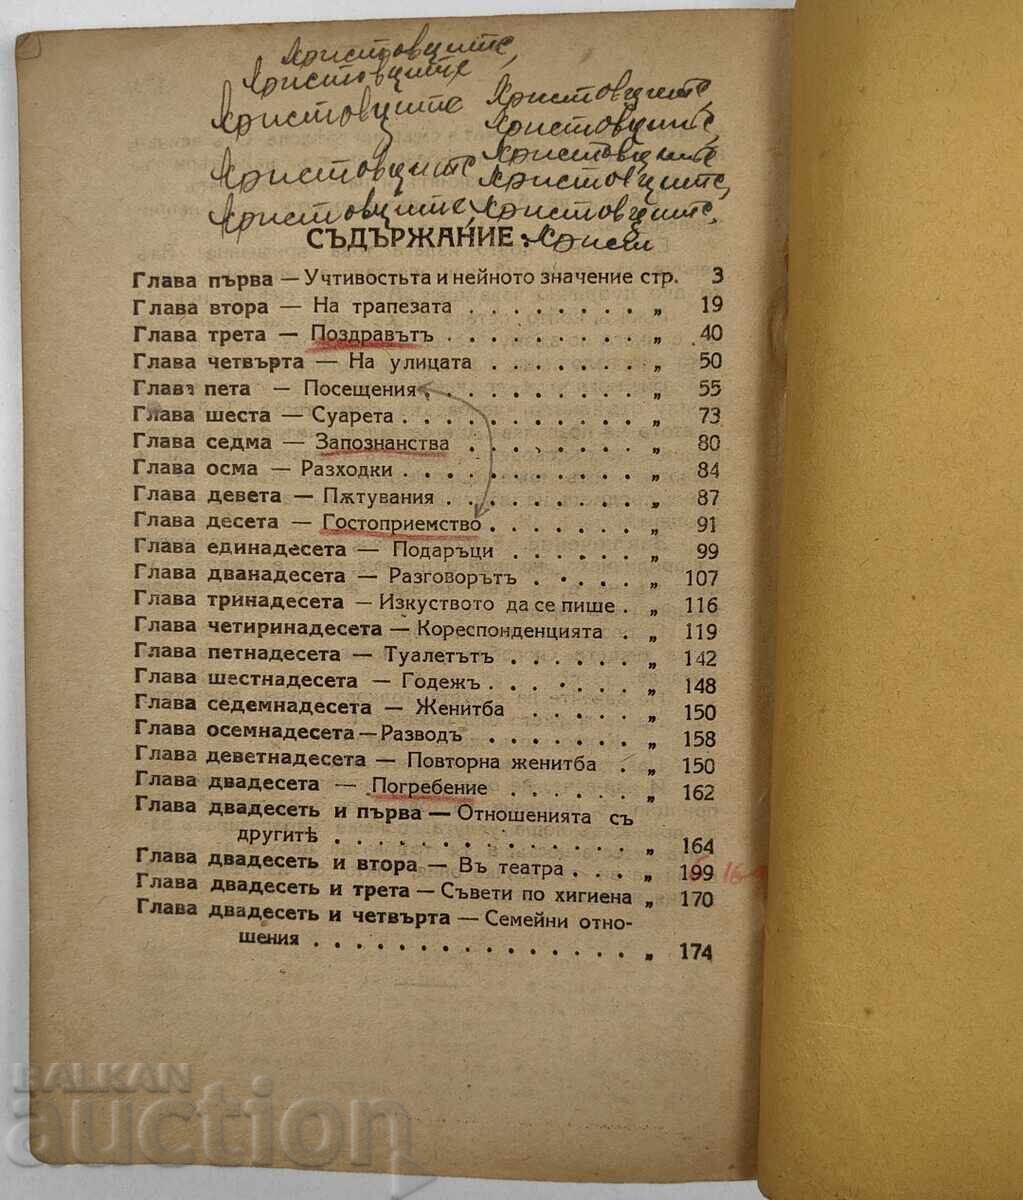 Христовците,
Христовците
Христовците Христовците,
Христовците,
Христовците
Христовците Христовците,
Христовците, Христовците,
СЪДЪРЖАНИЕ: Христ
Глава първа — Учтивостьта и нейното значение стр. 3
Глава втора — На трапезата . . . . . . . . „ 19
Глава трета — Поздравътъ . . . . . . . . . „ 40
Глава четвърта — На улицата . . . . . . . „ 50
Глава пета — Посещения . . . . . . . . . . „ 55
Глава шеста — Суарета . . . . . . . . . . . „ 73
Глава седма — Запознанства . . . . . . . . „ 80
Глава осма — Разходки . . . . . . . . . . . „ 84
Глава девета — Пѫтувания . . . . . . . . . „ 87
Глава десета — Гостоприемство . . . . . . . „ 91
Глава единадесета — Подаръци . . . . . . „ 99
Глава дванадесета — Разговорътъ . . . . . „ 107
Глава тринадесета — Изкуството да се пише . „ 116
Глава четиринадесета — Кореспонденцията . „ 119
Глава петнадесета — Туалетътъ . . . . . . „ 142
Глава шестнадесета — Годежъ . . . . . . . „ 148
Глава седемнадесета — Женитба . . . . . „ 150
Глава осемнадесета — Разводъ . . . . . . . „ 158
Глава деветнадесета — Повторна женитба . „ 150
Глава двадесета — Погребение . . . . . . „ 162
Глава двадесеть и първа — Отношенията съ
другитѣ . . . . . . . . . . . . . . . „ 164
Глава двадесеть и втора — Въ театра . . . . „ 199
Глава двадесеть и трета — Съвети по хигиена „ 170
Глава двадесеть и четвърта — Семейни отно-
шения . . . . . . . . . . . . . . . . „ 174
BALKAN
auction